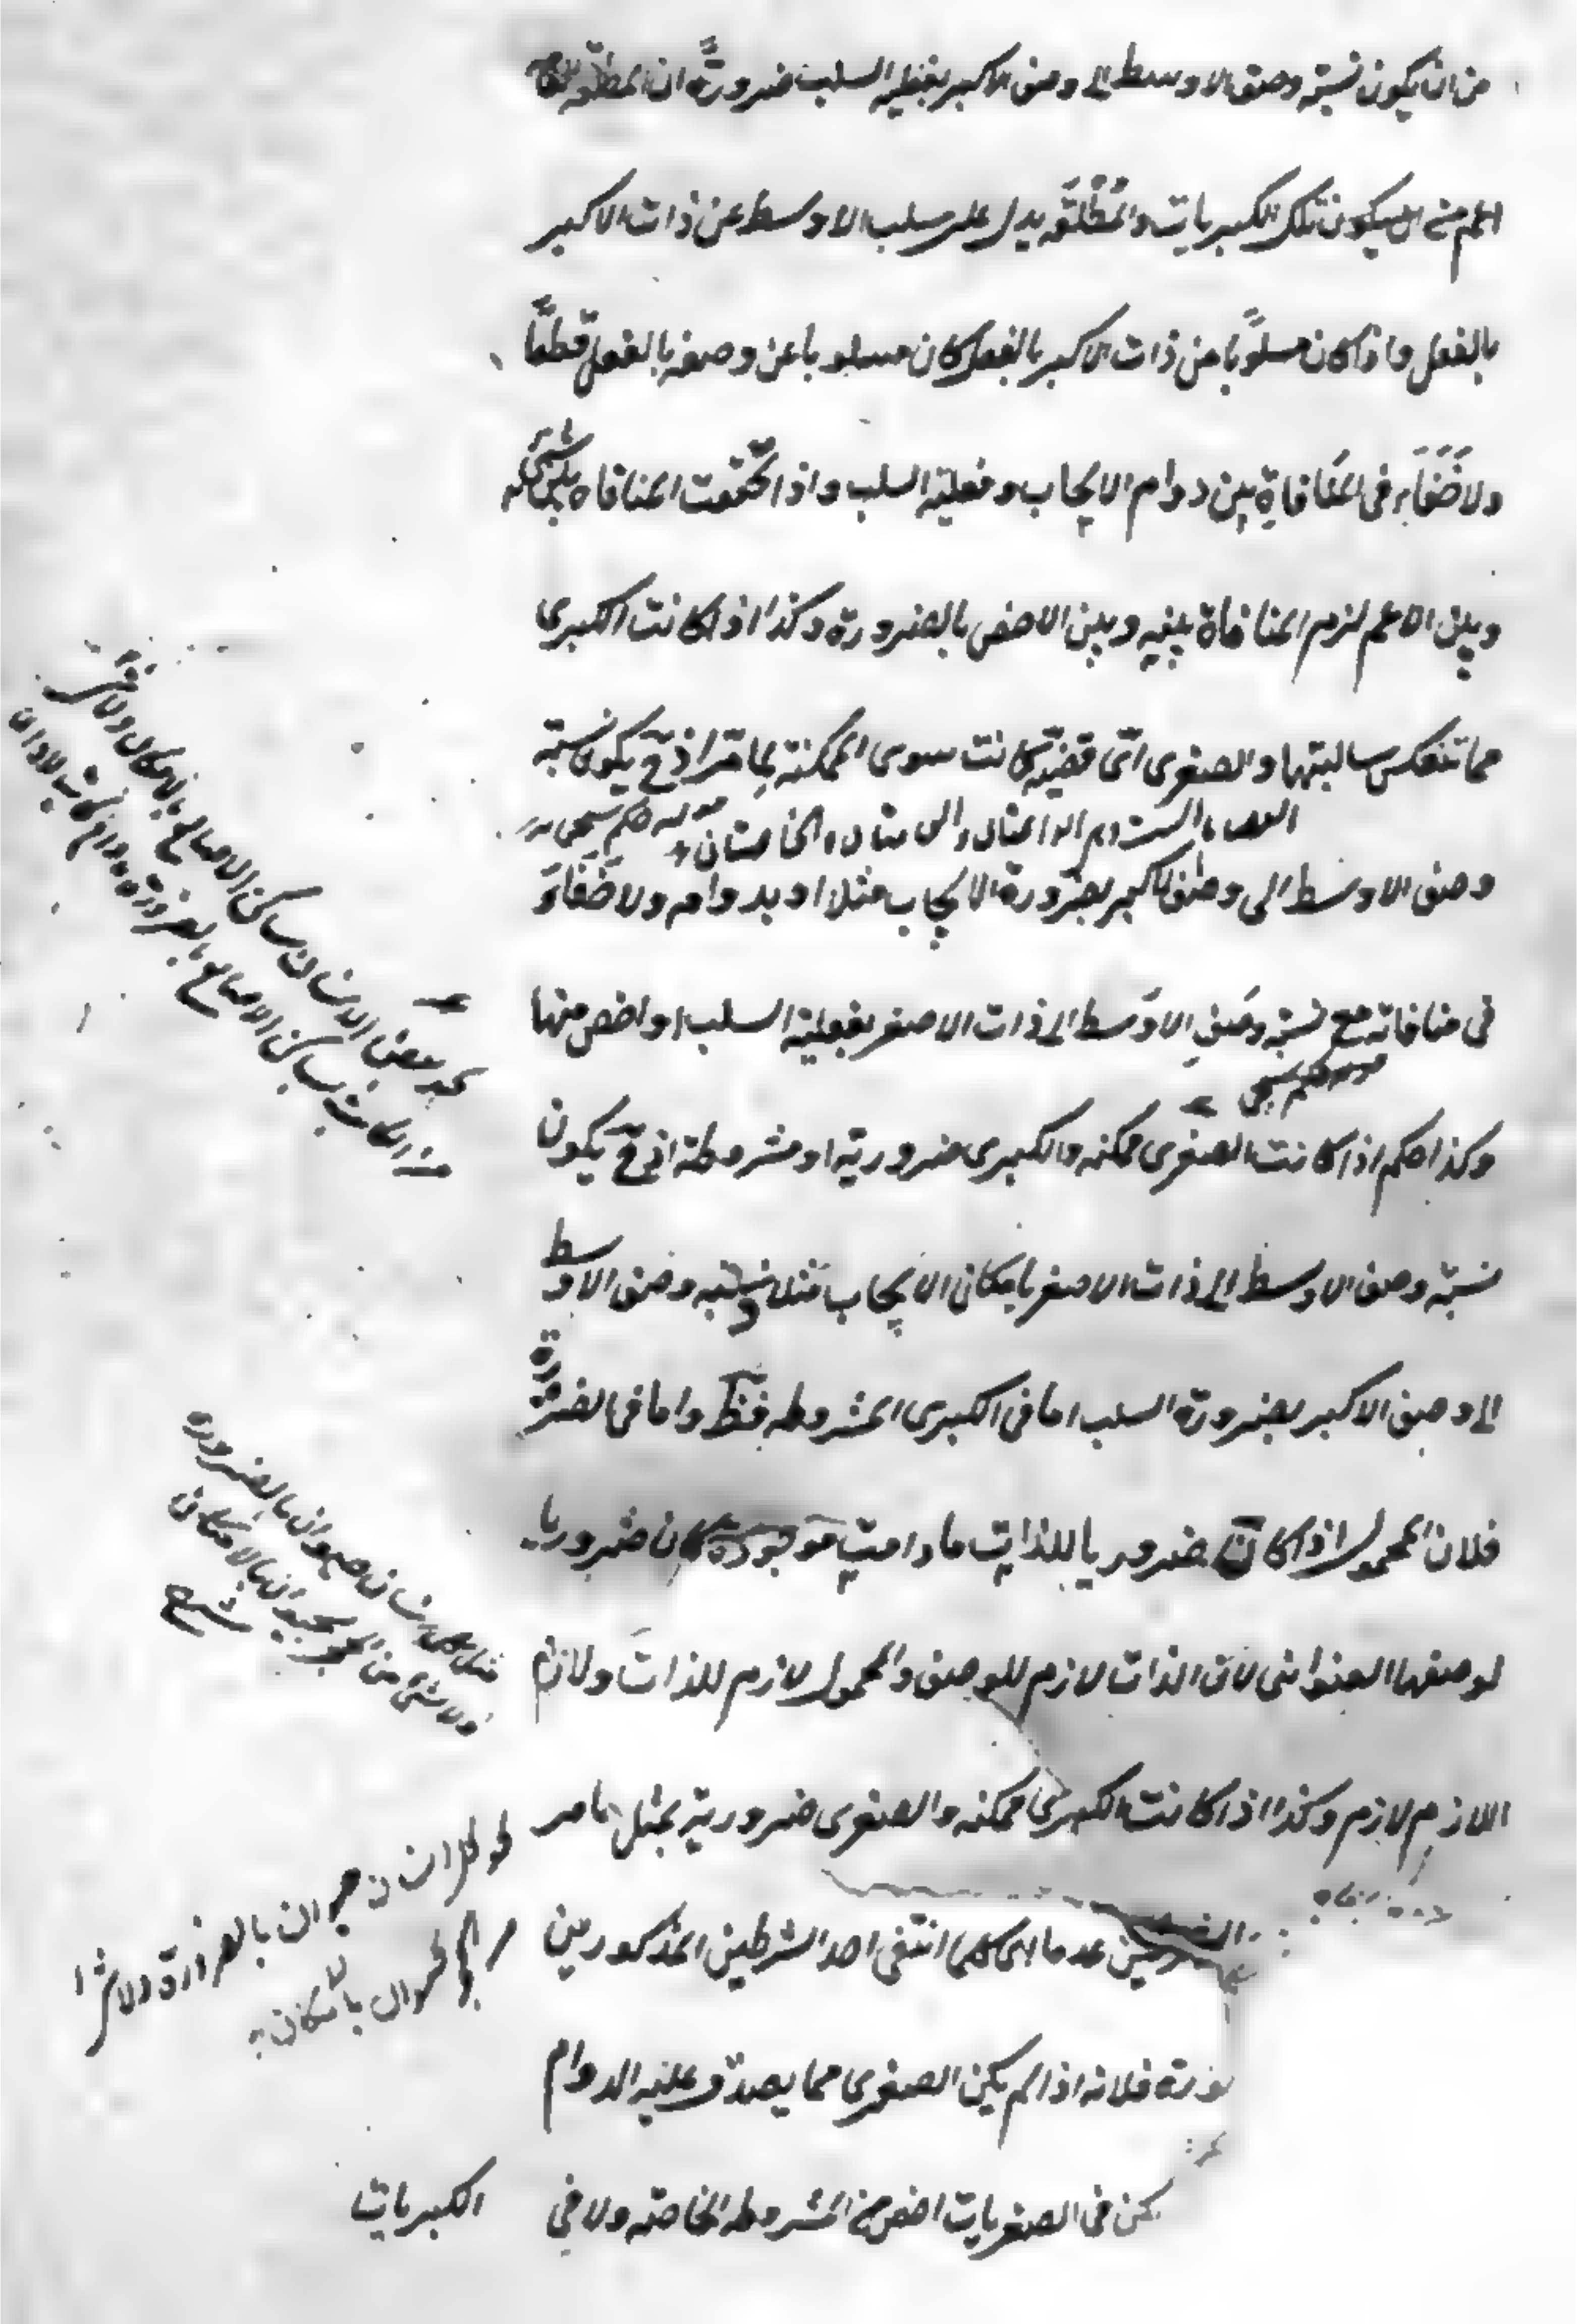 من ان يكون نسبة وصف الاوسط الى وصف الاكبر بفعلية السلب ضرورة ان المطلقة العامة
اعم من تلك الكبريات والمطلقة يدل على سلب الاوسط عن ذات الاكبر
بالفعل واذا كان مسلوبا من ذات الاكبر بالفعل كان مسلوبا عن وصفه بالفعل قطعا
ولا خفاء في المنافاة بين دوام الايجاب وفعلية السلب واذا تحققت المنافاة بين شئ
وبين الاعم لزم المنافاة بينه وبين الاخص بالضرورة وكذا اذا كانت الكبرى
مما تنعكس سالبتها والصغرى اي قضية كانت سوى الممكنة لما مر اذ ح يكون نسبة
وصف الاوسط الى وصف الاكبر بضرورة الايجاب مثلا او بدوامه ولا خفاء
في منافاته مع نسبة وصف الاوسط الى ذات الاصغر بفعلية السلب او اخص منها
وكذا حكم اذا كانت الصغرى ممكنه والكبرى ضرورية او مشروطة اذ ح يكون
نسبة وصف الاوسط الى ذات الاصغر بامكان الايجاب مثلا ونسبة وصف الاوسط
الى وصف الاكبر بضرورة السلب اما في الكبرى المشروطه فظ واما في الضرورة
فلان المحمول اذا كان ضروريا للذات ما دامت موجودة كان ضروريا
لوصفها العنواني لان الذات لازم للوصف والمحمول لازم للذات ولازم
اللازم لازم وكذا اذا كانت الكبرى ممكنه والصغرى ضرورية بمثل ما مر
عدما اى كلما انتفى احد الشرطين المذكورين
فلانه اذا لم يكن الصغرى مما يصدق عليه الدوام
في الصغريات اخص من المشروطه الخاصه ولا في
الكبريات
نحو بعض الانسان ساكن الاصابع بالامكان ولا شئ
من الكاتب بساكن الاصابع بالضرورة
مثل كل انسان حيوان بالضرورة
ولا شئ من الحجر بحيوان بالامكان
شرح
نحو كل انسان حيوان بالضرورة ولا شئ